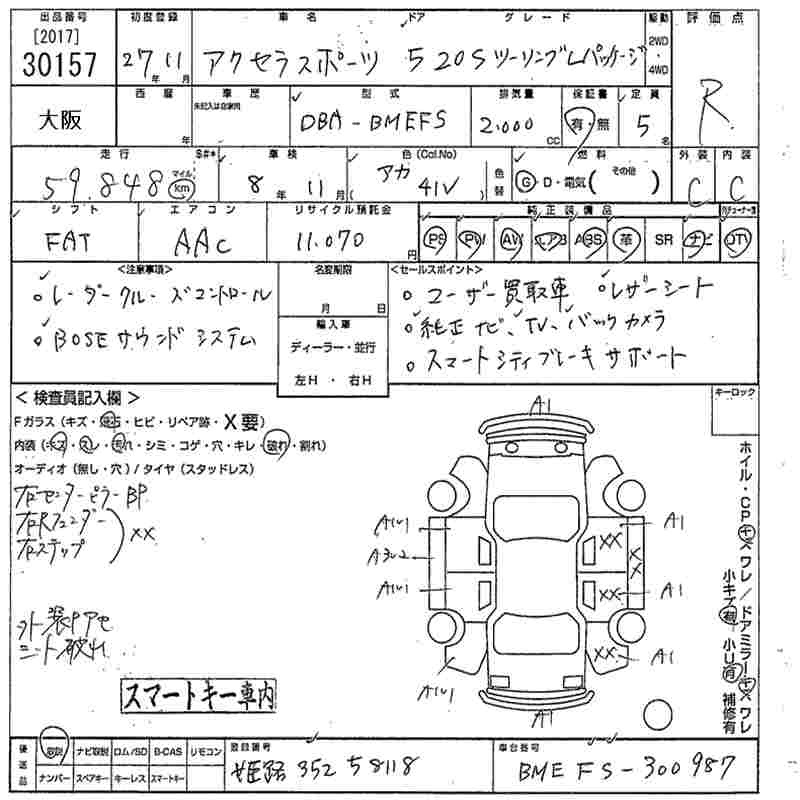 出品番号 初度登録 車名 ドア グレード 駆動 評価点
[2017]
30157 27年 11月 アクセラスポーツ 5 20Sツーリング Lパッケージ 2WD・4WD R
西暦 車歴 型式 排気量 保証書 定員
大阪 年 未記入は自家用 DBA-BMEFS 2.000 CC 有・無 5 名
走行 S#* 車検 色(Col.No) 燃料 外装 内装
59.848 マイル km 8年 11月 ( アカ 41V ) 色替 G・D・電気( その他 ) C C
シフト エアコン リサイクル預託金 純正装備品
FAT AAC 11.070円 PS PW AW エアB ABS 革 SR ナビ TV
<注意事項> 名変期限 <セールスポイント>
。レーダークルーズコントロール 月 日 。ユーザー買取車 。レザーシート
。BOSEサウンドシステム 輸入車 。純正ナビ、TV、バックカメラ
ディーラー・並行 。スマートシティブレーキサポート
左H ・ 右H
<検査員記入欄> キーロック
Fガラス(キズ・飛石・ヒビ・リペア跡・X要)
内装(キズ・スレ・汚れ・シミ・コゲ・穴・キレ・破れ・割れ)
オーディオ(無し・穴)/タイヤ(スタッドレス)
右センターピラーBP
右Rフェンダー
右ステップ
XX
外装
ニット破れ
スマートキー車内
A1
A1
XX
A3
XX
XX
A1
XX
A1
XX
A1
A1
ホイル・CPキズワレ/ドアミラーキズワレ
小キズ有 小U有 補修有
後送品 取説 ナビ取説 ロム/SD B-CAS リモコン 登録番号 車台番号
ナンバー スペアキー キーレス スマートキー 姫路 352 す 8118 BMEFS-300987